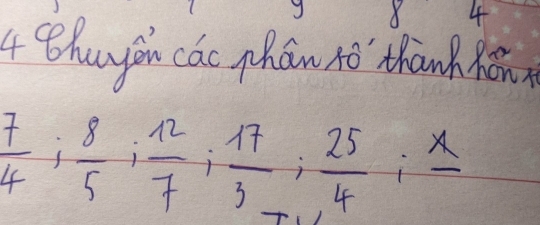 9 8 4
4 Chuyển các phân số thành hỗn
7/4 ; 8/5 ; 12/7 ; 17/3 ; 25/4 ;